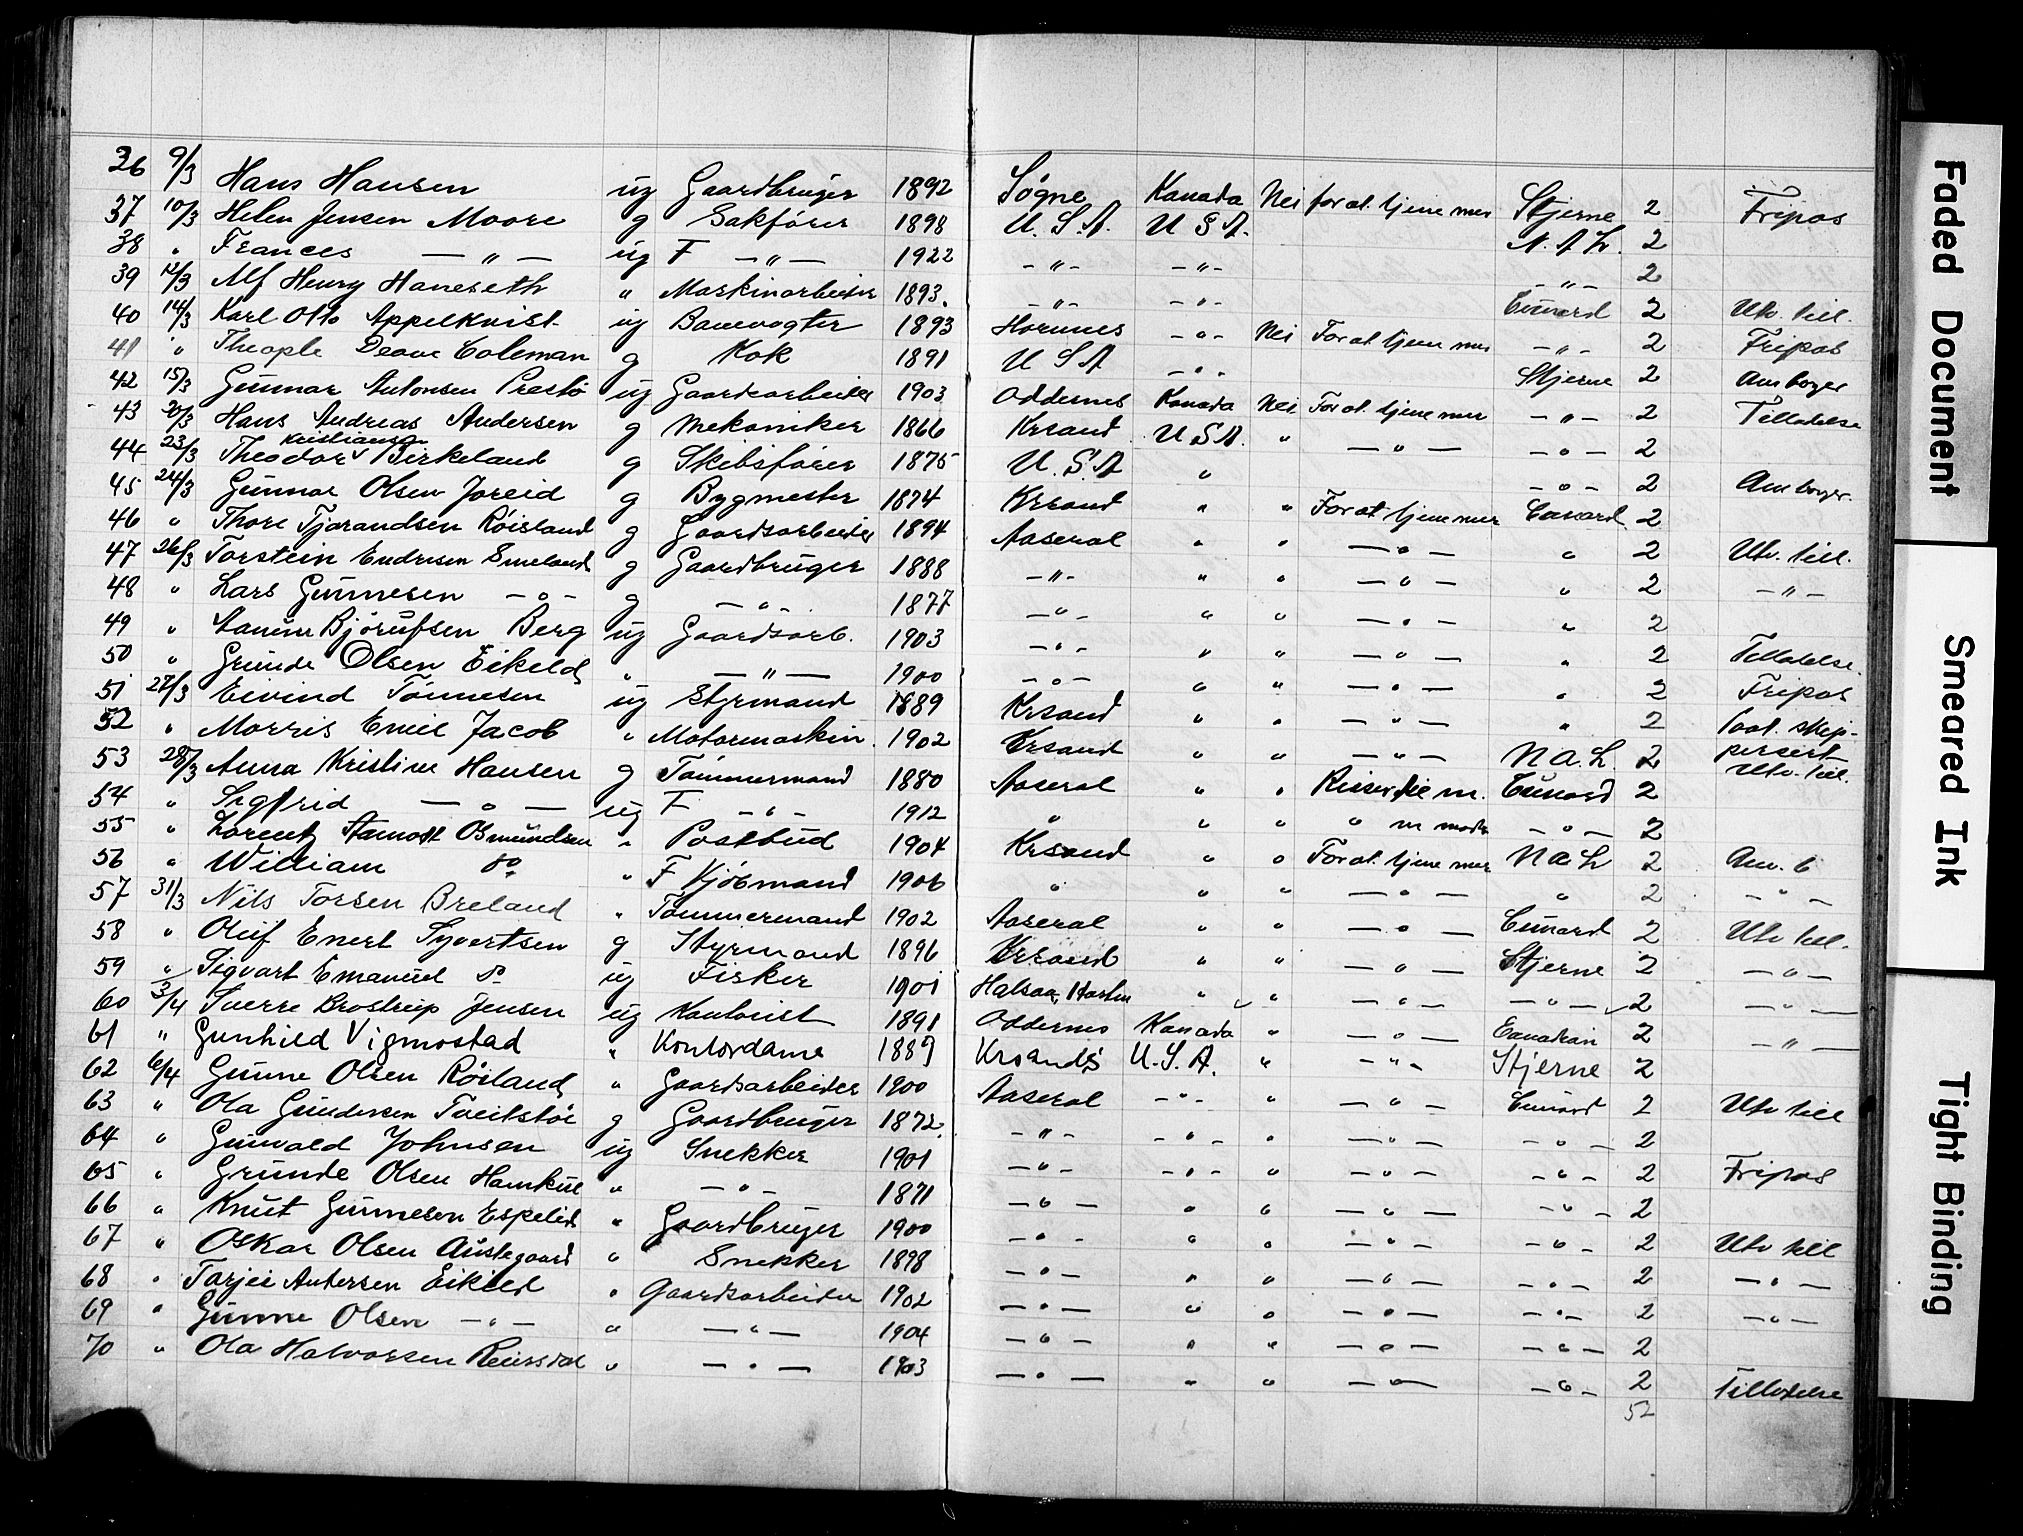 36 9/3 Hans Hansen ug Gaardbruger 1892 Søgne Kanada Nei for at tjene mer Stjerne 2 Fripas
37 10/3 Helen Jensen Moore g Sakfører 1898 U.S.A. U S A. N. A L. 2
38 " Frances — " — ug F — " — 1922 — " — — " — — " — 2
39 12/3 Alf Henry Haneseth " Maskinarbeider 1893. — " — — " — Cunard 2 Utv. till.
40 14/3 Karl Otto Appelkvist ug Banevogter 1893 Hornnes — " — Nei For at tjene mer — " — 2 Fripas
41 " Theople Deave Coleman g Kok 1891 U S A — " — Stjerne 2 Am borger
42 15/3 Gunnar Antonsen Prestø ug Gaardsarbeider 1903 Oddernes Kanada Nei For at tjene mer — " — 2 Tilladelse
43 20/3 Hans Andreas Andersen g Mekaniker 1866 Krsand U S A. " — " — — " — 2
44 23/3 Theodor Kristiansen Birkeland g Skibsfører 1875 U. S. A " — " — 2 Am borger.
45 24/3 Gunnar Olsen Joreid g Bygmester 1874 Krsand " " For at tjene mer Cunard 2
46 " Thore Tjorandsen Røisland g Gaardsarbeider 1894 Aaseral " " — " — " 2 Utv. till.
47 26/3 Torstein Endresen Smeland g Gaardbruger 1888 — " — " " — " — " 2 — " —
48 " Lars Gunnesen — " — g — " — 1877 — " — " " — " — " 2
49 " Bjørufsen Berg ug Gaardsarb. 1903 — " — " " — " — " 2 Tilladelse.
50 " Grunde Olsen Eikeld " — " — 1900 — " — " " — " — " 2 Fripas
51 27/3 Eivind Tønnesen ug Styrmand 1889 Krsand " " — " — " 2
52 " Morris Emil Jacob " Motormaskin. 1902 Krsand " " — " — N A. L. 2
53 28/3 Anna Kristine Hansen g Tømmermand 1880 Aaseral " " Cunard 2 Utv. till.
54 " Sigfrid — " — ug F — " — 1912 " " " " m moder — " — 2
55 " Lorentz Osmundsen " Postbud 1904 Krsand " " For at tjene mer N a L 2 Am. b
56 " William do " F Kjøbmand 1906 " " " — " — " 2 — " —
57 31/3 Nils Torsen Breland " Tømmermand 1902 Aaseral " " — " — Cunard 2 Utv till.
58 " Oluf Enert Syvertsen g Styrmand 1896 Krsand " " — " — Stjerne 2 — " —
59 " Sigvart Emanuel do ug Fisker 1901 Halsaa, " " — " — — " — 2 — " —
60 3/4 Sverre Brostrup Jensen ug Kontorist 1891 Oddernes Kanada " — " — Canadian 2 — " —
61 " Gunhild Vigmostad " Kontordame 1889 Krsands U.S.A. " — " — Stjerne 2
62 6/4 Gunne Olsen Røisland " Gaardsarbeider 1900 Aaseral — " — " — " — Cunard 2 Utv till
63 " Ola Gundersen Tveitstøl g Gaardbruger 1872. — " — — " — " — " — — " — 2
64 " Gunvald Johnsen ug Snekker 1901 — " — — " — " — " — — " — 2 Fripas
65 " Grunde Olsen Hamkul " — " — 1871 — " — " " — " — — " — 2
66 " Knut Gunnesen Espelid " Gaardbruger 1900 — " — " " — " — — " — 2 Utv till
67 " Oskar Olsen Austegaard " Snekker 1898 — " — " " — " — — " — 2 — " —
68 " Tarjei Andersen Eikeld " Gaardsarbeider 1902 — " — " " — " — — " — 2 — " —
69 " Gunne Olsen — " — " — " — 1904 — " — " " — " — — " — 2
70 " Ola Halvorsen Reiersdal " — " — 1903 — " — " " — " — — " — 2 Tilladelse
52
Faded Document
Smeared Ink
Tight Binding